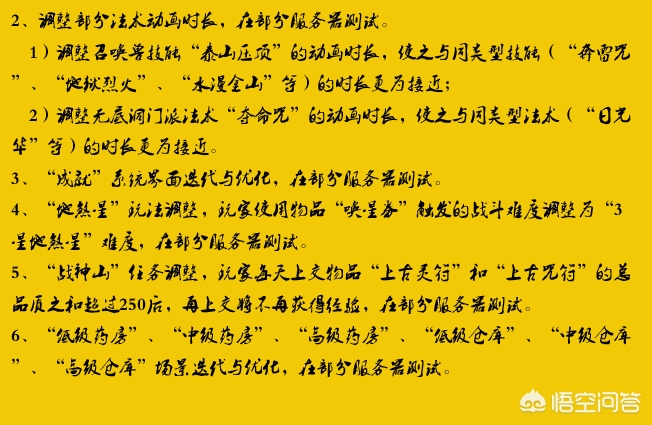 2、调整部分法术动画时长，在部分服务器测试。
1）调整召唤兽技能“泰山压顶”的动画时长，使之与同类型技能（“奔雷咒
”、“地狱烈火”、“水漫金山”等）的时长更为接近；
2）调整无底洞门派法术“夺命咒”的动画时长，使之与同类型法术（“日光
华”等）的时长更为接近。
3、“成就”系统界面迭代与优化，在部分服务器测试。
4、“地煞星”玩法调整，玩家使用物品“唤星券”触发的战斗难度调整为“3
星地煞星”难度，在部分服务器测试。
5、“战神山”任务调整，玩家每天上交物品“上古灵符”和“上古咒符”的总
品质之和超过250后，再上交将不再获得经验，在部分服务器测试。
6、“低级药房”、“中级药房”、“高级药房”、“低级仓库”、“中级仓库
”、“高级仓库”场景迭代与优化，在部分服务器测试。
悟空问答